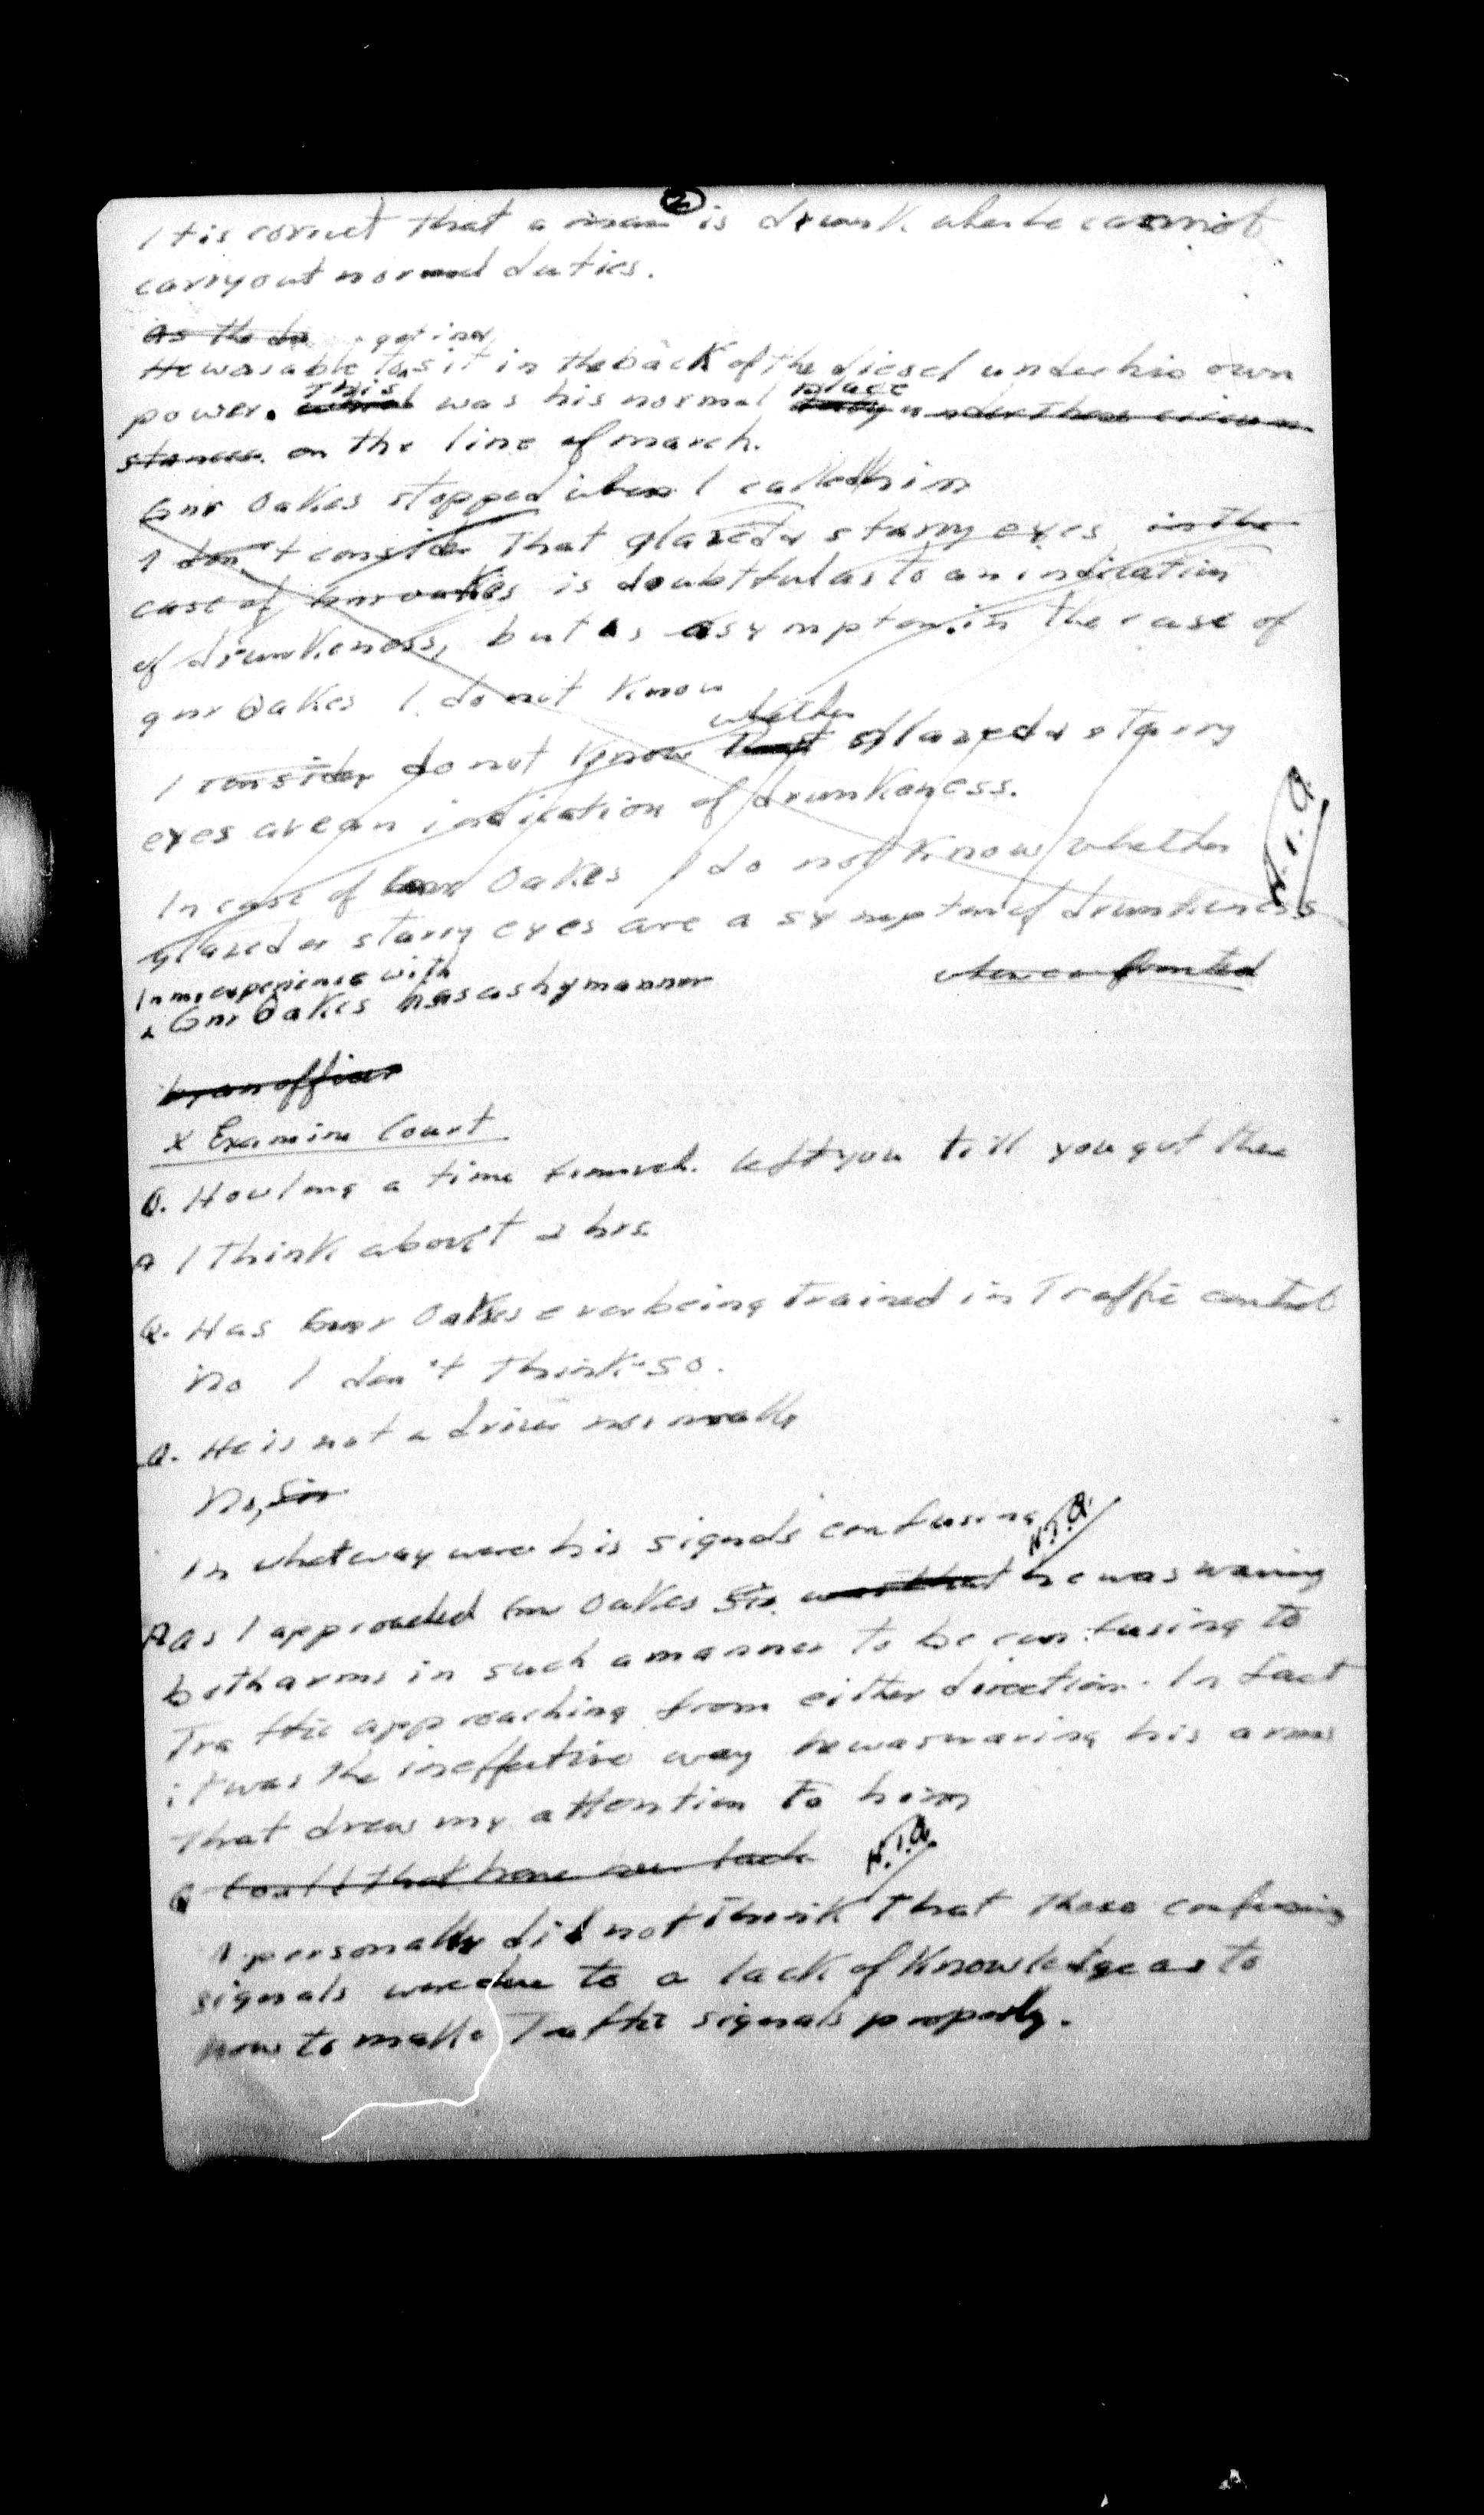 2
It is correct that a man is drunk when he cannot
carry out normal duties.
As the
get in or
He was able to sit in the back of the diesel under his own
This place
power. was his normal duty under these circum
stances. on the line of march.
Gnr Oakes stopped when I called him
I don't consider that glazed or starry eyes in the
case of Gnr Oakes is doubtful as to an indication
of drunkeness, but as a symptom in the case of
gnr Oakes I do not know
whether
I consider do not know that glazed or starry
eyes are an indication of drunkeness.
In case of Gnr Oakes I do not know whether
glazed or starry eyes are a symptom of drunkeness
In my experience with
Gnr Oakes has a shy manner when confronted
by an officer
X Examine Court
Q. How long a time left you till you got there
A I think about 2 hrs.
Q. Has Gnr Oakes ever being trained in Traffic control
No I don't think so.
Q. He is not a driver normally
No, Sir
In what way were his signals confusing
A As I approached Gnr Oakes Sir. was that he was waving
both arms in such a manner to be confusing to
Traffic approaching from either direction. In fact
it was the ineffective way he was waving his arms
that drew my attention to him
Q Could that have been lack
I personally did not think that these confusing
signals were due to a lack of knowledge as to
how to make Traffic signals properly.